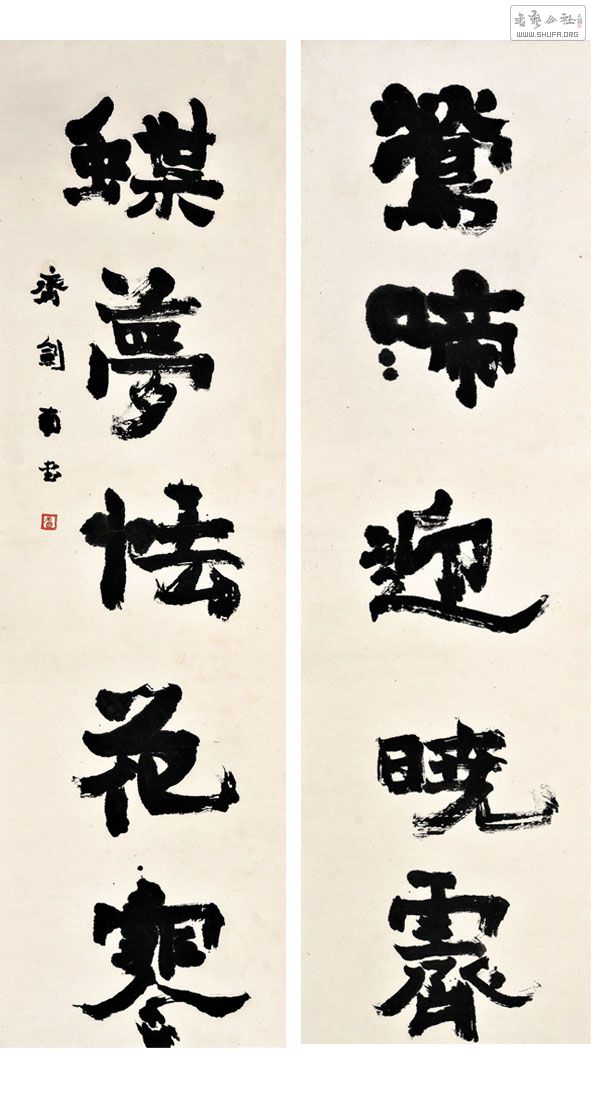 書藝公社
WWW.SHUFA.ORG
鶯啼迎曉霽
蝶夢怯花寒
齊劍南書